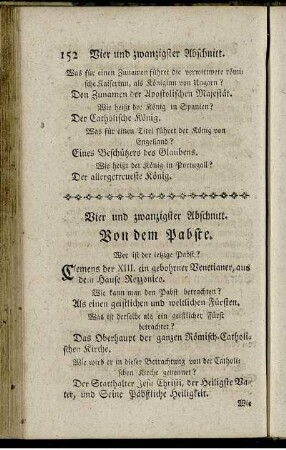 152 Vier und zwanzigster Abschnitt.
Was für einen Zunamen führet die verwittwete römi
sche Kaiserinn, als Königinn von Ungarn?
Den Zunamen der Apostolischen Majestät.
Wie heißt der König in Spanien?
Der Catholische König.
Was für einen Titel führet der König von
Engelland?
Eines Beschützers des Glaubens.
Wie heißt der König in Portugall?
Der allergetreueste König.
Vier und zwanzigster Abschnitt.
Von dem Pabste.
Wer ist der jetzige Pabst?
Clemens der XIII. ein gebohrner Venetianer, aus
dem Hause Rezzonico.
Wie kann man den Pabst betrachten?
Als einen geistlichen und weltlichen Fürsten.
Was ist derselbe als ein geistlicher Fürst
betrachtet?
Das Oberhaupt der ganzen Römisch-Catholi-
schen Kirche.
Wie wird er in dieser Betrachtung von der Catholi
schen Kirche genennet?
Der Statthalter Jesu Christi, der Heiligste Va-
ter, und Seine Päbstliche Heiligkeit.
Wie